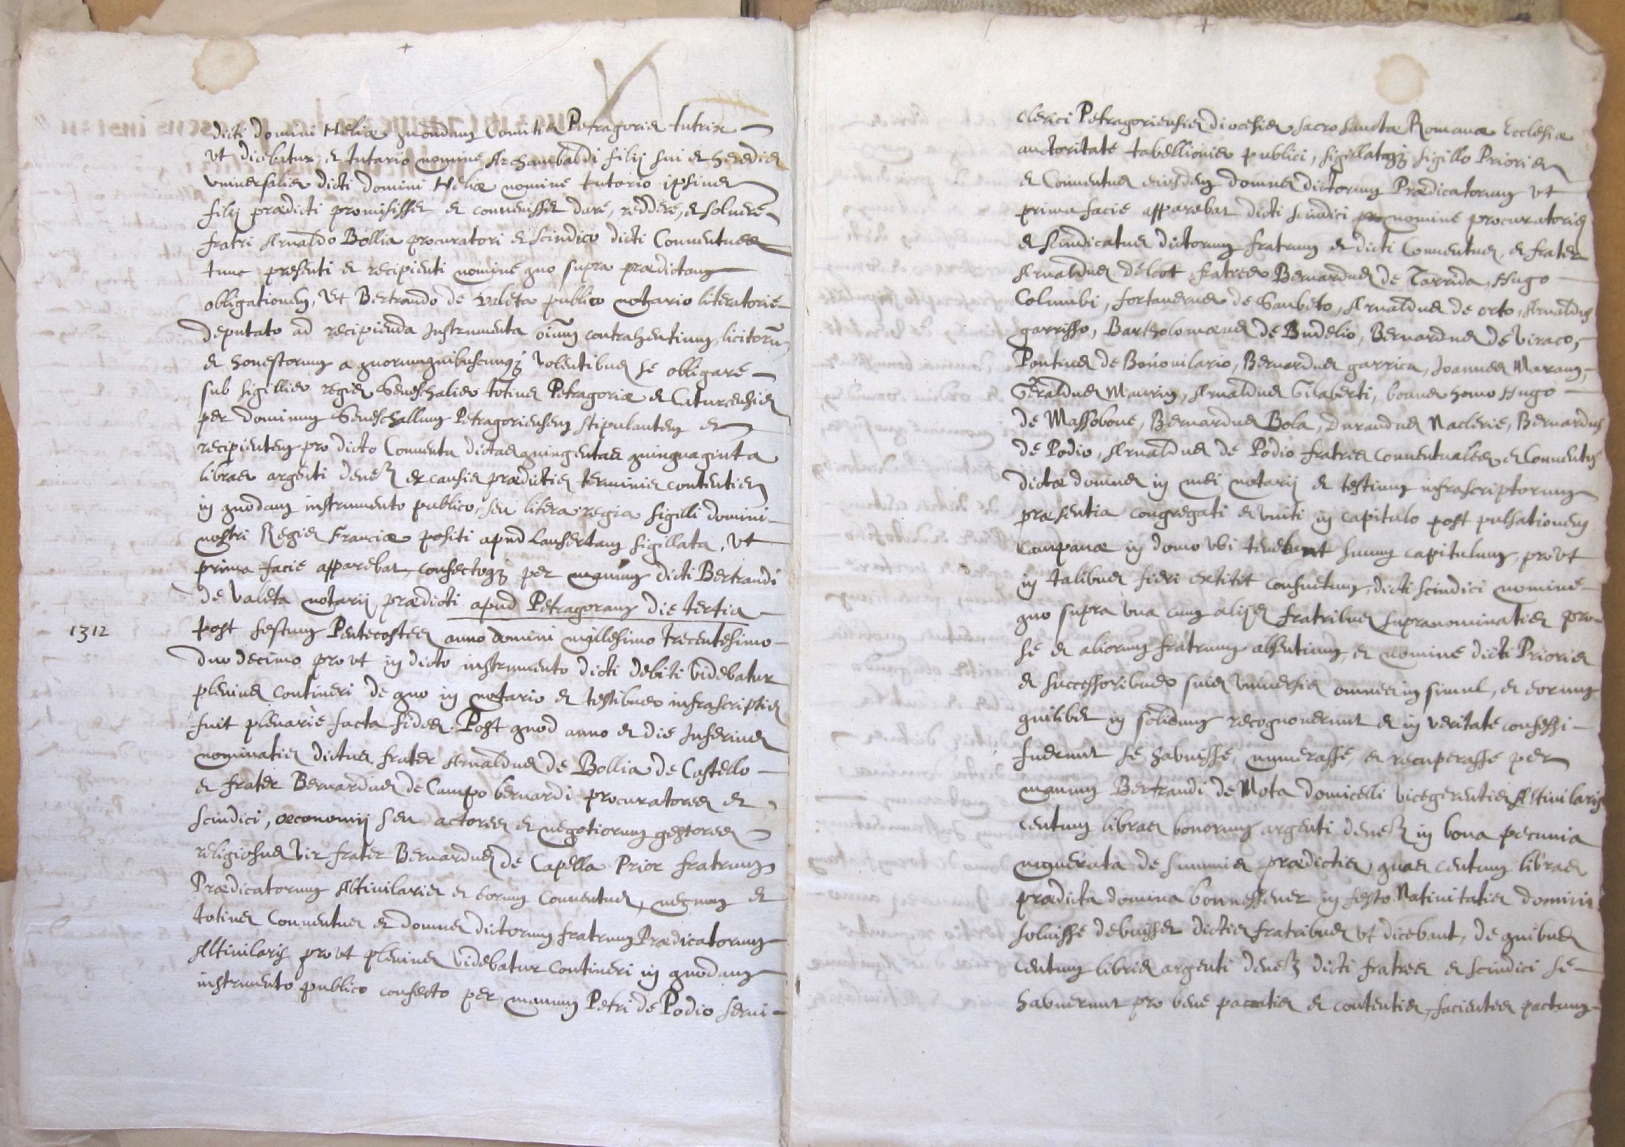 dicti domini Heliæ quondam Comitis Petragoris tutrix
vt dicebatur, et tutorio nomine Archambaldi filij sui et heredis
vniuersalis dicti domini Heliæ nomine tutorio ipsius
filij prædicti promisisset et conuenisset dare, reddere, et soluere
fratri Arnaldo Bollia procuratori et scindico dicti Conuentus
tunc presenti et recipienti nomine quo supra prædictam
obligationem, vt Bertrando de Valeta publico notario literatorie
deputato ad recipienda Instrumenta oium contrahentium licitorū
et honestorum a quorumquibuscumqȝ volentibus se obligare
sub sigillis regis Seneschalis totius Petragoriæ et Caturcensis
per dominum Seneschallum Petragoriensem stipulantem et
recipientem pro dicto Conuentu dictas quingentas quinquaginta
libras argenti deneȝ ex causis prædictis terminis contentis
in quodam instrumento publico, seu litera regia sigilli domini
nostri Regis Franciæ positi apud Lausertam sigillata, vt
prima facie apparebat, confectoqȝ per manum dicti Bertrandi
de Valeta notarij prædicti apud Petragoram die tertia
1312
post festum Pentecostes anno domini millesimo trecentesimo
duodecimo, pro vt in dicto instrumento dicti debiti videbatur
plenius contineri de quo in notario et testibus infrascriptis
fuit plenarie facta fides. Post quod anno et die Inferius
nominatis dictus frater Arnaldus de Bollia de Castello
et frater Bernardus de Campo bernardi procuratores et
scindici, œconomij seu actores et negotiorum gestores
religiosus vir frater Bernardus de Capella Prior fratrum
Prædicatorum Altiuilaris et eorum Conuentus, necnon et
totius Conuentus et domus dictorum fratrum Prædicatorum
Altiuilaris pro vt plenius videbatur contineri in quodam
instrumento publico confecto per manum Petri de Podio serui
clerici Petragoriensis diocesis sacro sanctæ Romanæ Ecclesiæ
auctoritate tabellionis publici, sigillatoqȝ sigillo Prioris
et Conuentus eiusdem domus dictorum Prædicatorum vt
prima facie apparebat dicti scindici nomine procuratoris
et scindicatus dictorum fratrum et dicti Conuentus, et frater
Arnaldus delcot fratres Bernardus de Tarrida, Hugo
Columbi, fortanerus de Saubeto, Arnaldus de orto, Arnaldus
garrisso, Bartholomæus de Budelio, Bernardus de viraco,
Pontius de Bonouilario, Bernardus garrica, Joannes Maram,
Geraldus Maurin, Arnaldus Gilaberti, bonus homo Hugo
de Massobone, Bernardus Bola, durandus Naclerie, Bernardus
de Podio, Arnaldus de Podio fratres conuentuales et Conuentus
dictæ domus in mei notarij et testium infrascriptorum
præsentia congregati et vniti in capitulo post pulsationem
campanæ in domo vbi tenebant suum capitulum, pro vt
in talibus fieri extitit consuetum, dicti scindici nomine
quo supra vna cum alijs fratribus supranominatis pro
se et aliorum fratrum absentium, et nomine dicti Prioris
et successoribus suis vniuersis omnes in simul, et eorum
quilibet in solidum recognouerunt et in veritate confessi
fuerunt se habuisse, numerasse, et recuperasse per
manum Bertrandi de Mota domicelli vicegerentis Altiuilaris
centum libras bonorum argenti deneȝ in bona pecunia
numerata de summis prædictis, quas centum libras
prædicta domina brunessenx in festo Natiuitatis domini
soluisse debuisset dictis fratribus vt dicebant, de quibus
centum libris argenti deneȝ dicti fratres et scindici se
habuerunt pro bene paccatis et contentis, facientes pactum